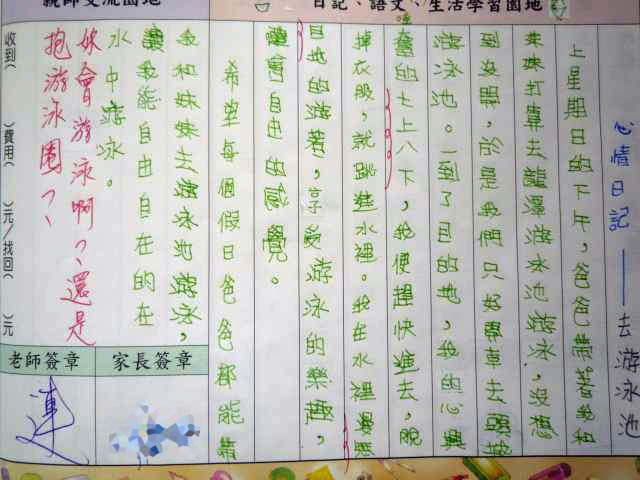 親師交流園地
日記、語文、生活學習園地
心情日記——去游泳池
上星期日的下午,爸爸帶著我和
妹妹打算去龍潭游泳池游泳,沒想
到沒開,於是我們只好開車去
游泳池。一到了目的地,我的心興
奮的七上八下,我便趕快進去,脫
掉衣服,就跳進水裡。我在水裡
自地的游著,享受游泳的樂趣,
體會自由自感覺。
希望每個假日爸爸都能帶
我和妹妹去游泳池游泳,
讓我能自由自在的在
水中游泳。
妹會游泳啊、還是
抱游泳圈
收到( )費用( )元/找回( )元
家長簽章
老師簽章
連